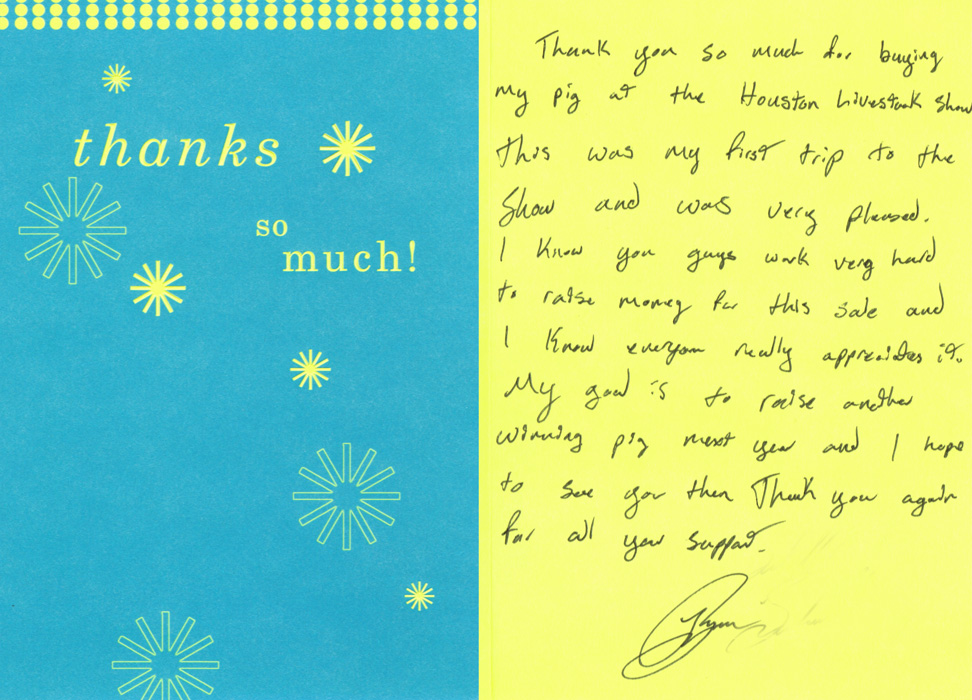 thanks
so
much!
Thank you so much for buying
my pig at the Houston Livestock Show
This was my first trip to the
Show and was very pleased.
I know you guys work very hard
to raise money for this sale and
I know everyone really appreciates it.
My goal is to raise another
winning pig next year and I hope
to see you then Thank you again
for all your support.